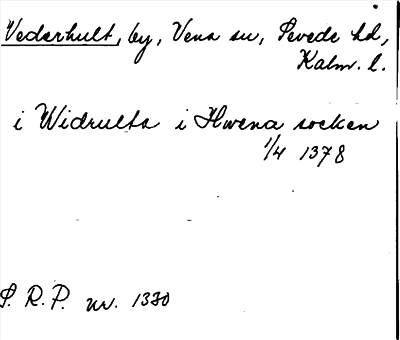 Vederhult, by, Vena sn, Sevede hd,
Kalm. l.
i Widrulta i Hwena socken
1/4 1378
S. R. P. nr. 1330